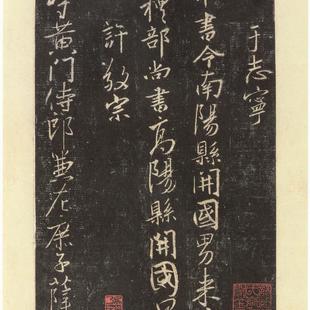 于志寧
書令南陽縣開國男來
禮部尚書高陽縣開國男
許敬宗
守黃門侍郎兼左庶子薛